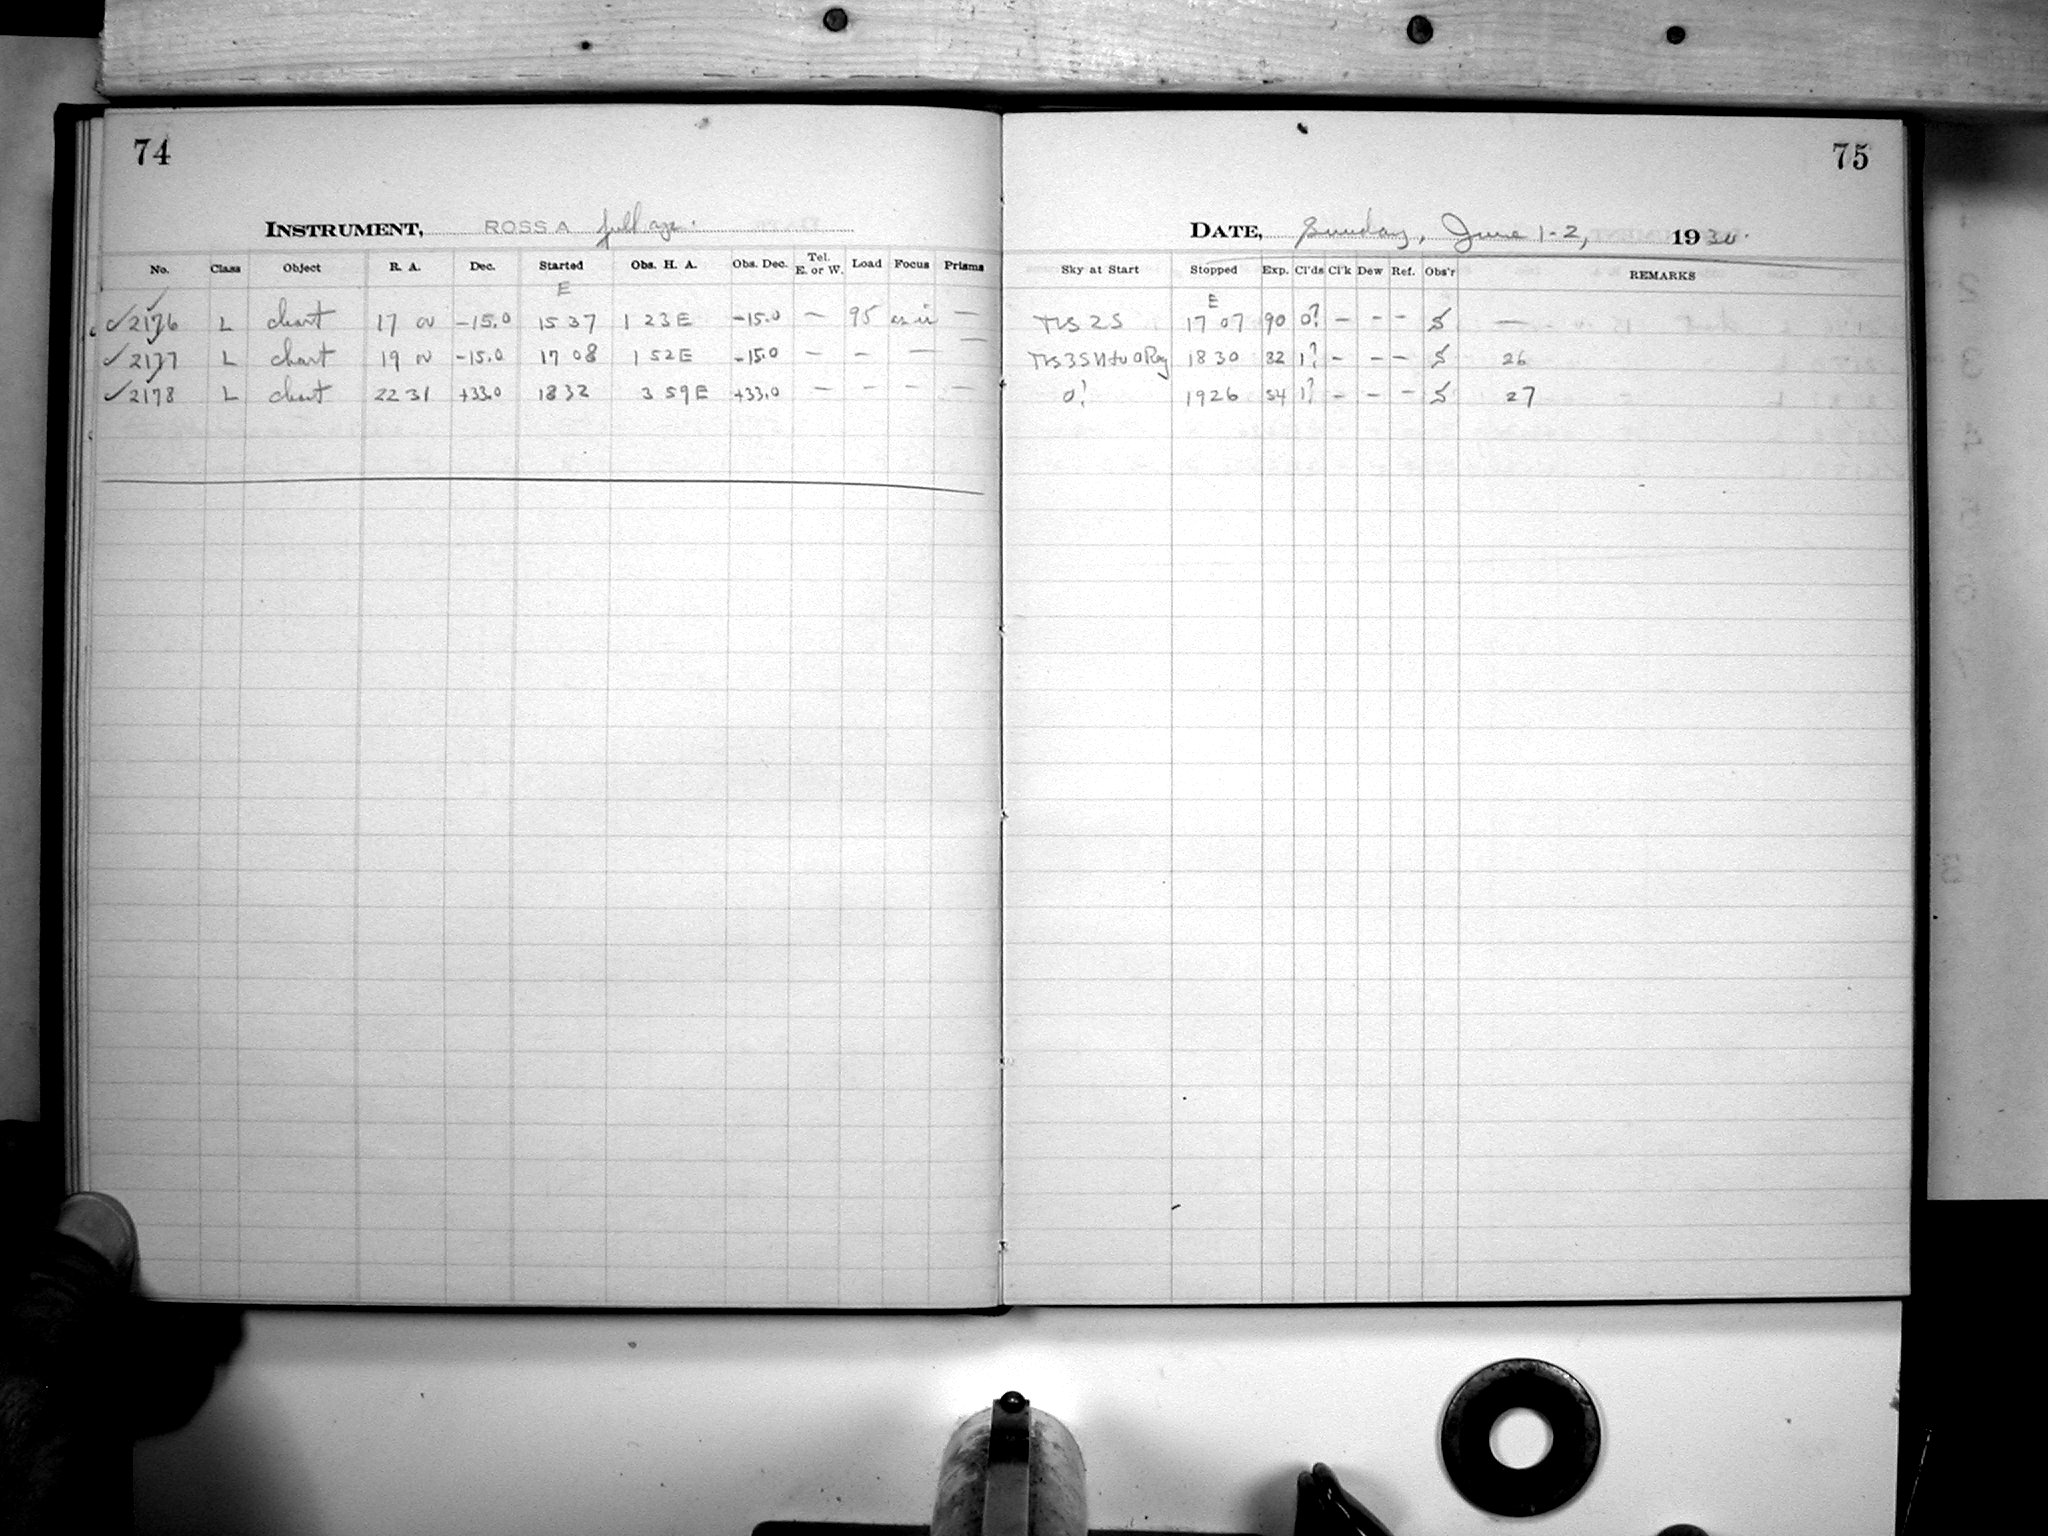 74
INSTRUMENT, ROSS A full ape.
No. Class Object R. A. Dec. Started Obs. H. A. Obs. Dec. Tel. E. or W. Load Focus Prisms
E
✓2176 L chart 17 00 -15.0 15 37 1 23 E -15.0 — 95 as is —
✓2177 L chart 19 00 -15.0 17 08 1 52 E -15.0 — - — —
✓2178 L chart 22 31 +33.0 18 32 3 59 E +33.0 — - - —
75
DATE, Sunday, June 1-2, 1930.
Sky at Start Stopped Exp. Cl'ds Cl'k Dew Ref. Obs'r REMARKS
E
2S 17 07 90 0? - - - S —
18 30 82 1? - - - S 26
0? 19 26 54 1? - - - S 27